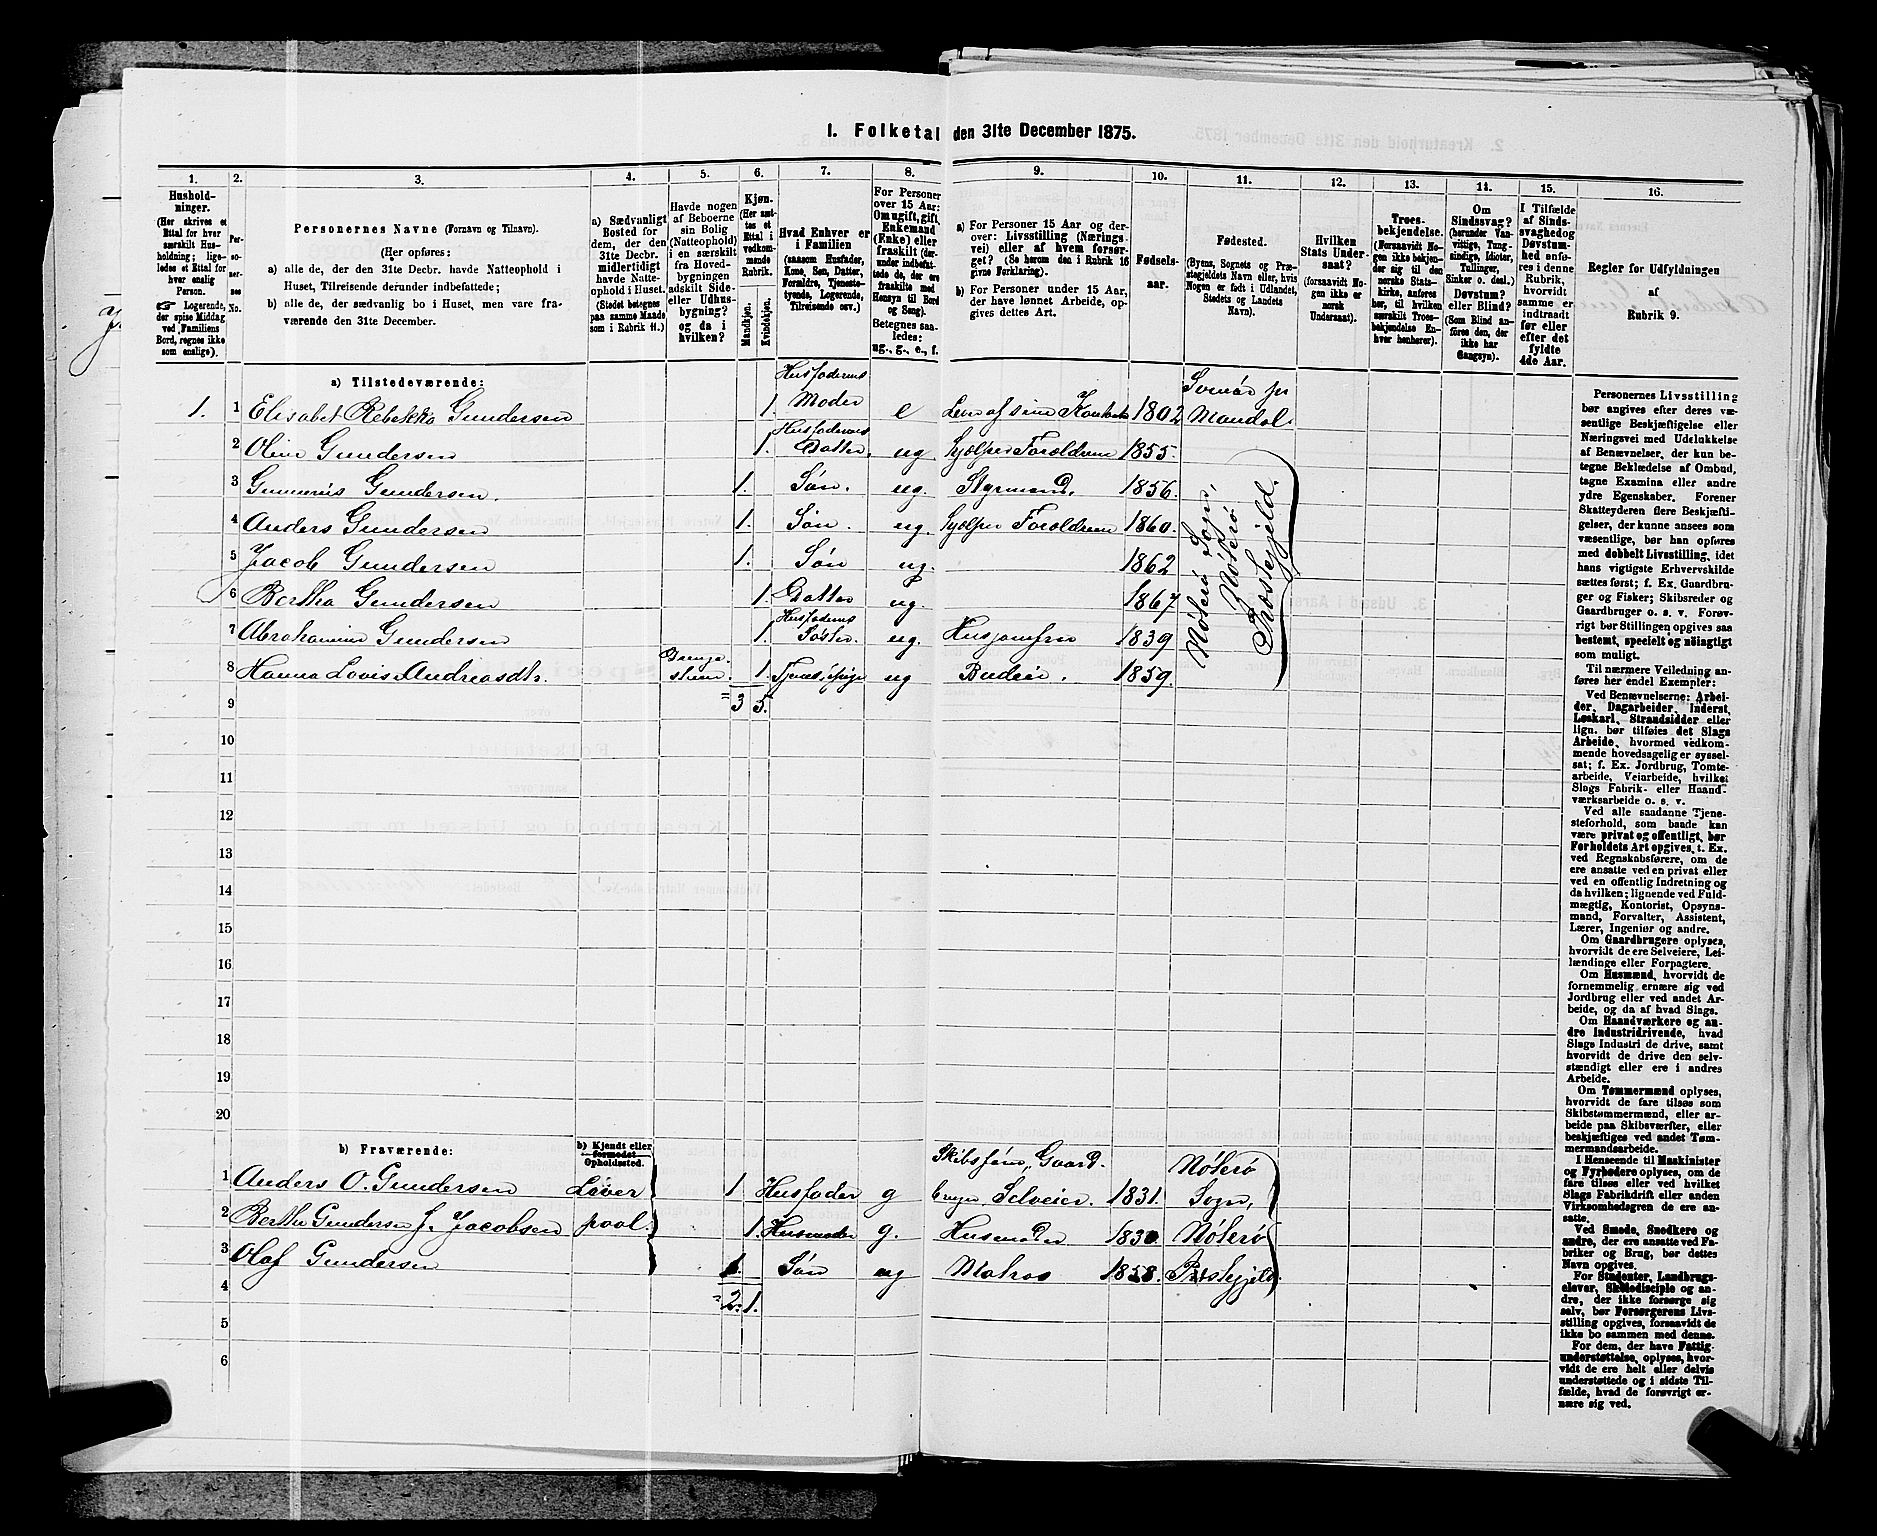 1. Folketal den 31te December 1875.
1.
Hushold-
ninger.
(Her skrives et
Ettal for hver
særskilt Hus-
holdning; lige-
ledes et Ettal for
hver enslig
Person.
☞ Logerende,
der spise Middag
ved Familiens
Bord, regnes ikke
som enslige).
2.
Per-
so-
ner-
nes
No.
3.
Personernes Navne (Fornavn og Tilnavn).
(Her opføres:
a) alle de, der den 31te Decbr. havde Natteophold i
Huset, Tilreisende derunder indbefattede;
b) alle de, der sædvanlig bo i Huset, men vare fra-
værende den 31te December.
4.
a) Sædvanligt
Bosted for
dem, der den
31te Decbr.
midlertidigt
havde Natte-
ophold i Huset.
(Stedet betegnes
paa samme Maade
som i Rubrik 11.)
5.
Havde nogen
af Beboerne
sin Bolig
(Natteophold)
i en særskilt
fra Hoved-
bygningen
adskilt Side-
eller Udhus-
bygning?
og da i
hvilken?
6.
Kjøn.
(Her sæt-
tes et
Ettal i
vedkom-
mende
Rubrik.
Mandkjøn.
Kvindekjøn.
7.
Hvad Enhver er
i Familien
(saasom Husfader,
Kone, Søn, Datter,
Forældre, Tjeneste-
tyende, Logerende,
Tilreisende osv.)
8.
For Personer
over 15 Aar:
Om ugift, gift,
Enkemand
(Enke) eller
fraskilt (der-
under indbefat-
tede de, der ere
fraskilte med
Hensyn til Bord
og Seng).
Betegnes saa-
ledes:
ug., g., e., f.
9.
a) For Personer 15 Aar og der-
over: Livsstilling (Nærings-
vei) eller af hvem forsør-
get? (Se herom den i Rubrik 16
givne Forklaring).
b) For Personer under 15 Aar,
der have lønnet Arbeide, op-
gives dettes Art.
10.
Fødsels-
aar.
11.
Fødested.
(Byens, Sognets og Præ-
stegjeldets Navn eller, hvis
Nogen er født i Udlandet,
Stedets og Landets
Navn).
12.
Hvilken
Stats Under-
saat?
(forsaavidt No-
gen ikke er
norsk
Undersaat).
13.
Troes-
bekjendelse.
(Forsaavidt No-
gen ikke bekjen-
der sig til den
norske Stats-
kirke, anføres
her, til hvilken
særskilt Troes-
bekjendelse En-
hver henhører).
14.
Om
Sindssvag?
(herunder Van-
vittige, Tung-
sindige, Idioter,
Tullinger,
Sinker o. desl.)
Døvstum?
eller Blind?
(Som Blind an-
føres den, der
ikke har
Gangsyn).
15.
I Tilfælde
af Sinds-
svaghed og
Døvstum-
hed anfø-
res i denne
Rubrik,
hvorvidt
samme er
indtraadt
før eller
efter det
fyldte
4de Aar.
16.
Regler for Udfyldningen
af
Rubrik 9.
a) Tilstedeværende:
1. 1 Elisabet Rebekka Gundersen 1. Husfaderens Moder e Lever af sine Kontante 1802 Mandal.
2 Oline Gundersen 1. Husfaderens Datter. ug Hjælper Forældrene 1855.
3 Gunnerius Gundersen. 1. Søn. ug. Styrmand. 1856.
4 Anders Gundersen 1. Søn. ug. Hjælper Forældrene 1860.
5 Jacob Gundersen 1. Søn ug. 1862
6 Bertha Gundersen 1. Datter ug. 1867
7 Abrahamine Gundersen 1. Husfaderens Søster. ug. Husjomfru 1839
8 Hanna Lovise Andreasdtr. 1. Tjenestepige ug Budeie. 1859.
Nøterø Sogn,
Nøterø
Præstegjeld.
9 = 3 5.
10
11
12
13
14
15
16
17
18
19
20
b) Fraværende:
b) Kjendt eller
formodet
Opholdssted.
1 Anders O. Gundersen Liver 1. Husfader g Skibsfører, Gaard-
bruger, Selveier. 1831. Nøterø Sogn,
2 Bertha Gundersen f. Jacobsen pool. 1. Husmoder g. Husmoder 1830 Nøterø
3 Olaf Gundersen 1. Søn ug Matros 1858. Prstegjeld.
4 = 2. 1.
5
6
Personernes Livsstilling
bør angives efter deres væ-
sentlige Beskjæftigelse eller
Næringsvei med Udelukkelse
af Benævnelser, der kun be-
tegne Beklædelse af Ombud,
tagne Examina eller andre
ydre Egenskaber. Forener
Skatteyderen flere Beskjæfti-
gelser, der kunne ansees som
væsentlige, bør han opføres
med dobbelt Livsstilling, idet
hans vigtigste Erhvervskilde
sættes først; f. Ex. Gaardbru-
ger og Fisker; Skibsreder og
Gaardbruger o. s. v. Forøv-
rigt bør Stillingen opgives saa
bestemt, specielt og nøiagtigt
som muligt.
Til nærmere Veiledning an-
føres her endel Exempler:
Ved Benævnelserne: Arbei-
der, Dagarbeider, Inderst,
Løskarl, Strandsidder eller
lign. bør tilføies det Slags
Arbeide, hvormed vedkom-
mende hovedsagelig er syssel-
sat; f. Ex. Jordbrug, Tomte-
arbeide, Veiarbeide, hvilket
Slags Fabrik- eller Haand-
værksarbeide o. s. v.
Ved alle saadanne Tjene-
steforhold, som baade kan
være privat og offentligt, bør
Forholdets Art opgives, t. Ex.
ved Regnskabsførere, om de
ere ansatte ved en privat eller
ved en offentlig Indretning og
da hvilken; lignende ved Fuld-
mægtig, Kontorist, Opsyns-
mand, Forvalter, Assistent,
Lærer, Ingeniør og andre.
Om Gaardbrugere oplyses,
hvorvidt de ere Selveiere, Lei-
lændinge eller Forpagtere.
Om Husmænd, hvorvidt de
fornemmelig ernære sig ved
Jordbrug eller ved andet Ar-
beide, og da af hvad Slags.
Om Haandværkere og an-
dre Industridrivende, hvad
Slags Industri de drive, samt
hvorvidt de drive den selv-
stændigt eller ere i andres
Arbeide.
Om Tømmermænd oplyses,
hvorvidt de fare tilsøs som
Skibstømmermænd, eller ar-
beide paa Skibsværfter, eller
beskjæftiges ved andet Tøm-
mermandsarbeide.
I Henseende til Maskinister
og Fyrbødere oplyses, om de
fare tilsøs eller ved hvilket
Slags Fabrikdrift eller anden
Virksomhedsgren de ere an-
satte.
Ved Smede, Snedkere og
andre, der ere ansatte ved Fa-
briker og Brug, bør dettes
Navn opgives.
For Studenter, Landbrugs-
elever, Skoledisciple og an-
dre, der ikke forsørge sig
selv, bør Forsørgerens Livs-
stilling opgives, forsaavidt de
ikke bo sammen med denne.
For dem, der have Fattig-
understøttelse, oplyses, hvor-
vidt de ere helt eller delvis
understøttede og i sidste Til-
fælde, hvad de forøvrigt er-
nære sig ved.